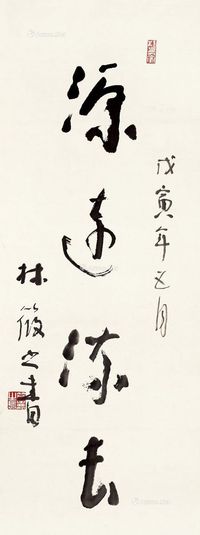 源远流长
戊寅年五月
林筱之书